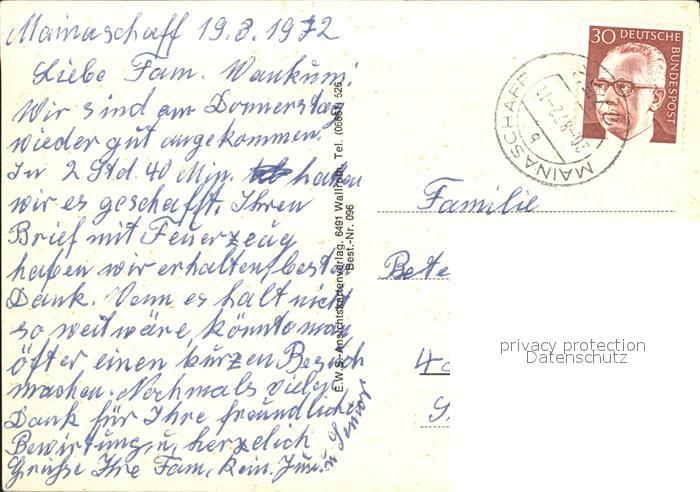 Mainaschaff 19.8.1972
Liebe Fam. Wankum!
Wir sind am Donnerstag
wieder gut angekommen.
In 2 Std. 40 Min. haben
wir es geschafft. Ihren
Brief mit Feuerzeug
haben wir erhalten, besten
Dank. Wenn es halt nicht
so weit wäre, könnte man
öfter einen kurzen Besuch
machen. Nochmals vielen
Dank für Ihre freundliche
Bewirtung u. herzelich
Grüße Ihre Fam. Jun. u.
Senior
E.W.S.-Ansichtskartenverlag, 6491 Wallroth, Tel. (06661) 526
Best.-Nr. 096
30 DEUTSCHE
BUNDESPOST
MAINASCHAFF
Familie
privacy protection
Datenschutz